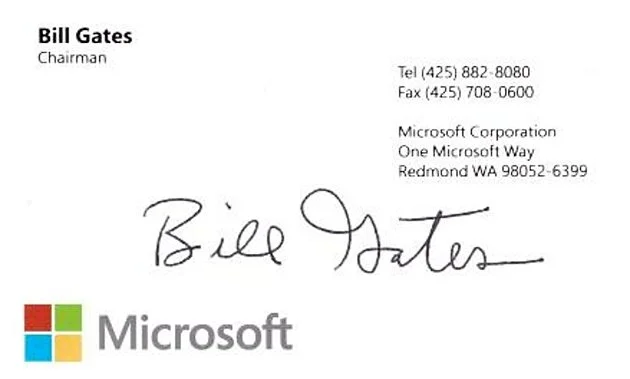 Bill Gates
Chairman
Tel (425) 882-8080
Fax (425) 708-0600
Microsoft Corporation
One Microsoft Way
Redmond WA 98052-6399
Bill Gates
Microsoft